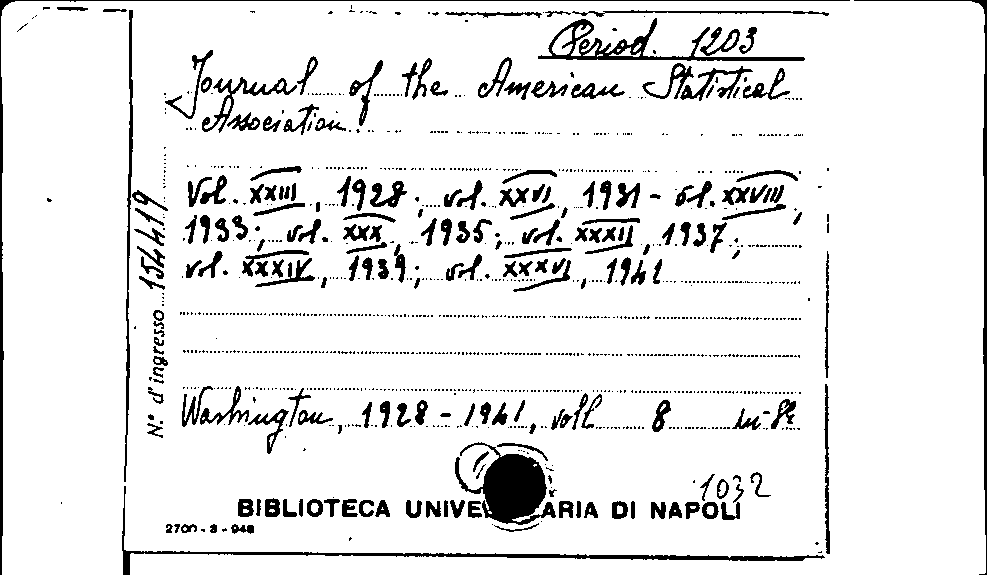 Period. 1203
Journal of the American Statistical
Association.
Vol. XXIII, 1928; vol. XXVI, 1931 - ol. XXVIII,
1933; vol. XXX, 1935; vol. XXXII, 1937;
vol. XXXIV, 1939; vol. XXXVI, 1941
N.° d'ingresso 154419
Washington, 1928 - 1941, voll 8 in-8°
1032
BIBLIOTECA UNIVE ARIA DI NAPOLI
2700 - 3 - 948